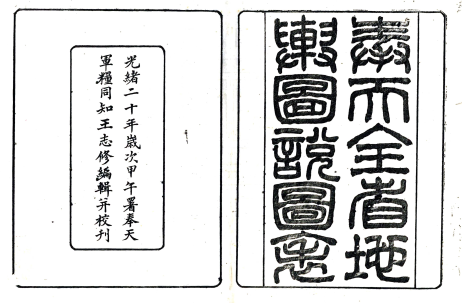 奉天全省地
輿圖說圖志
光緒二十年歲次甲午署奉天
軍糧同知王志修編輯并校刊